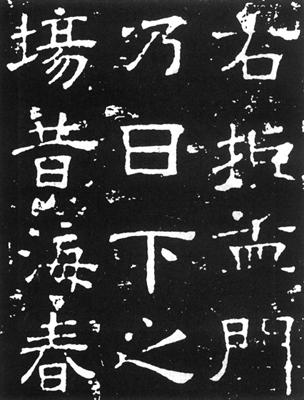 右指孟門
乃日下之
場昔海春